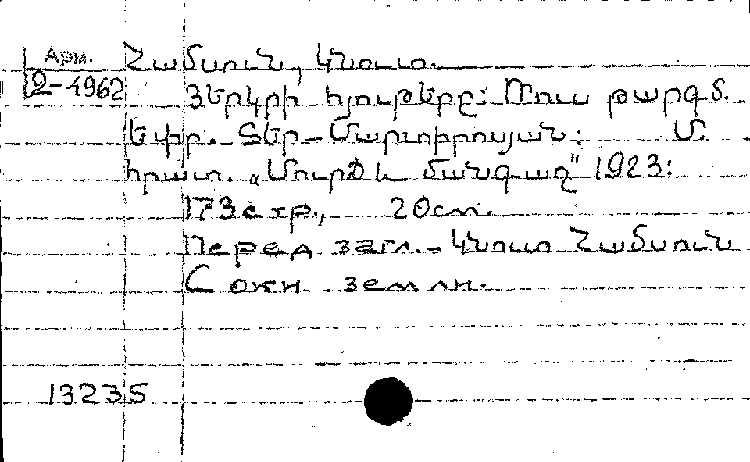 Арм. Համսուն, Կնուտ.
2-1962 Յերկրի հյութերը: Ռուս թարգմ.
Եփր. Տեր-Մարտիրոսյան: Մ.
հրատ. „Մուրճ և մանգաղ" 1923:
173 стр., 20 см.
Перед загл.- Կնուտ Համսուն
Соки земли.
13235